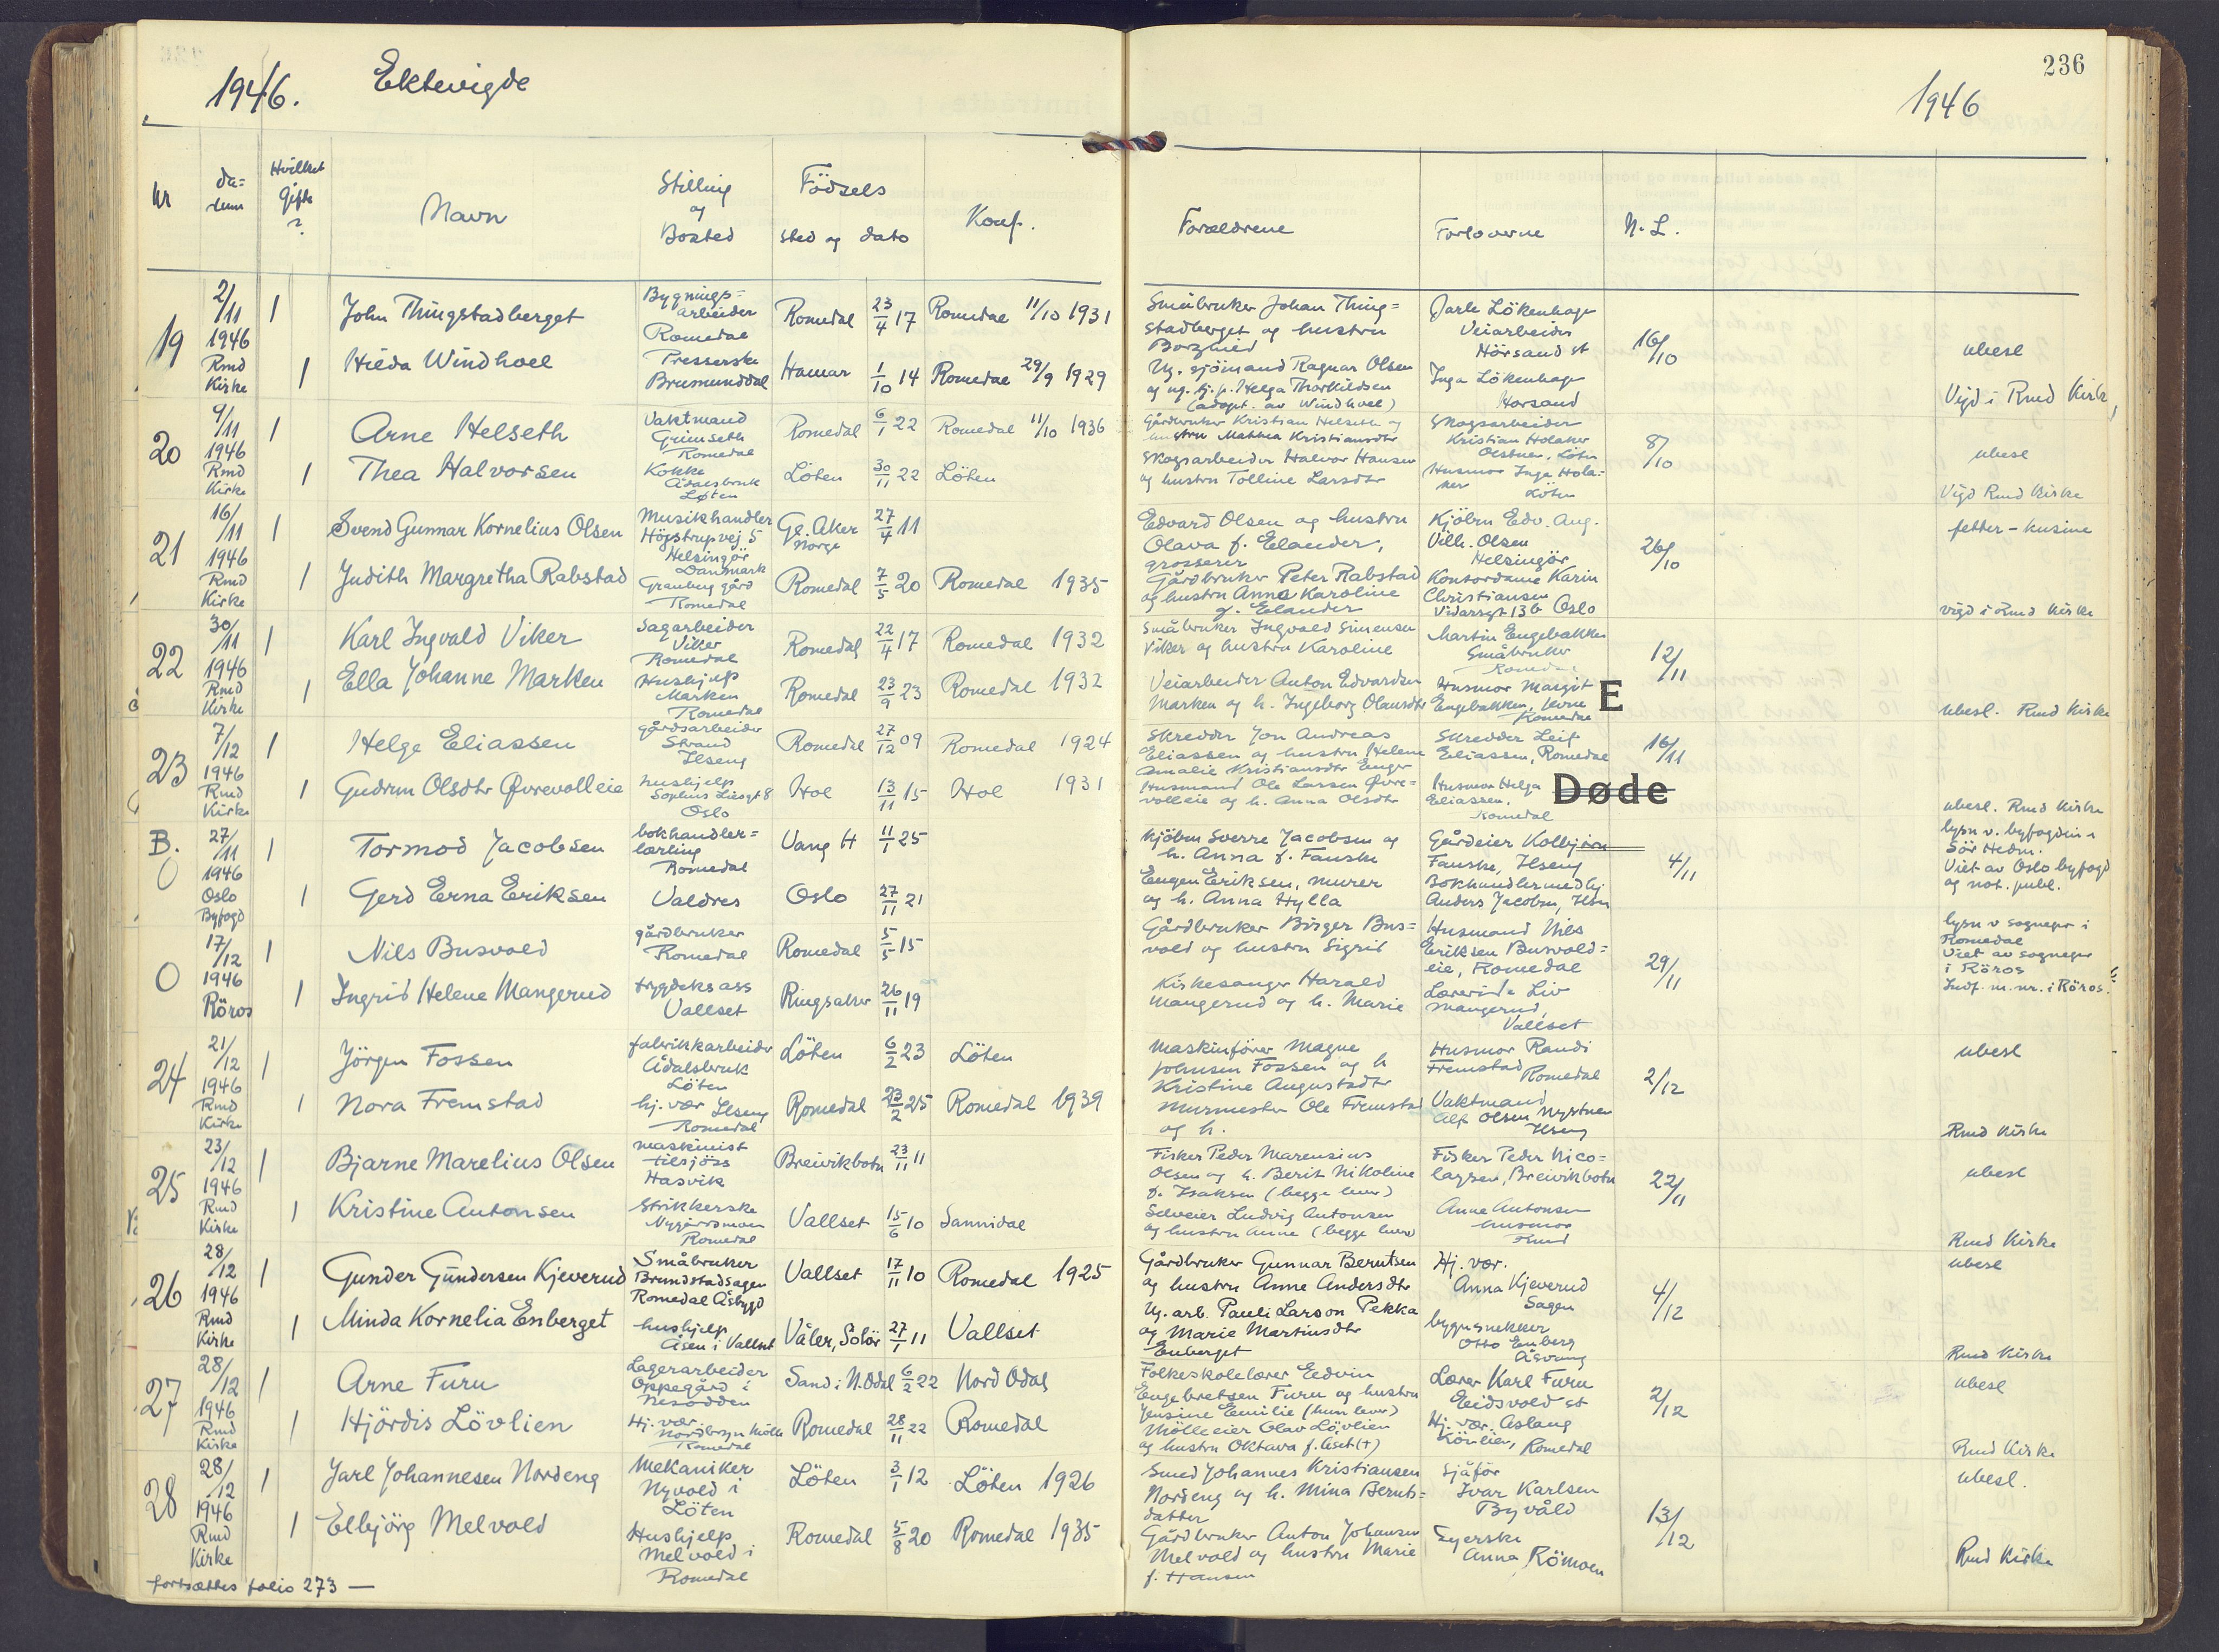 1946. Ektevigde
236
1946
Nr
da=
tum
Hvilket
Gifte
?
Navn
Stilling
og
Bosted
Födsels
sted og dato
Konf.
Foreldrene
Forloverne
N. L.
19
2/11
1946
Rmd
Kirke
1 John Thingstadberget
Bygnings=
arbeider
Romedal
Romedal 23/4 17 Romedal 11/10 1931
Småbruker Johan Thing=
stadberget og hustru
Borghild
Jarle Lökenhage
Veiarbeider
Hörsand st
16/10
ubesl
1 Hilda Windhoel
Presserske
Brumunddal
Hamar 1/10 14 Romedal 29/9 1929
Ug. sjömand Ragnar Olsen
og ug. tj.p. Helga Thorkildsen
(adopt. av Windhoel)
Inga Lökenhage
Horsand
Vigd i Rmd Kirke
20
9/11
1946
Rmd
Kirke
1 Arne Helseth
Vaktmand
Grimseth
Romedal
Romedal 6/1 22 Romedal 11/10 1936
Gårdbruker Kristian Helseth og
hustru Mathea Kristiansdtr
Skogsarbeider
Kristian Holaker
Löten
8/10
ubesl
1 Thea Halvorsen
Kokke
Ådalsbruk
Løten
Löten 30/11 22 Löten
Skogsarbeider Halvor Hansen
og hustru Tolline Larsdtr
Husmor Inga Hola=
ker
Löten
Vigd Rmd Kirke
21
16/11
1946
Rmd
Kirke
1 Svend Gunnar Kornelius Olsen
Musikhandler
Högstrupvej 5
Helsingör
Danmark
Ge. Aker
Norge
27/4 11
Edvard Olsen og hustru
Olava f. Elander,
grosserer
Kjöbm Edv. Aug.
Vilh. Olsen
Helsingör
26/10
fetter - kusine
1 Judith Margretha Rabstad
Granbug gård
Romedal
Romedal 7/5 20 Romedal 1935
Gårdbruker Peter Rabstad
og hustru Anna Karoline
f. Elander
Kontordame Karin
Christiansen
Vidarsgt 13b Oslo
vigd i Rmd Kirke
22
30/11
1946
Rmd
Kirke
1 Karl Ingvald Viker
Sagarbeider
Viker
Romedal
Romedal 22/4 17 Romedal 1932
Småbruker Ingvald Simensen
Viker og hustru Karoline
Martin Engebakken
Småbruker
Romedal
12/11
1 Ella Johanne Marken
Hushjelp
Marken
Romedal
Romedal 23/9 23 Romedal 1932
Veiarbeider Anton Edvardsen
Marken og h. Ingeborg Olausdtr
Husmor Margit
Engebakken,
Romedal
E
ubesl. Rmd Kirke
23
7/12
1946
Rmd
Kirke
1 Helge Eliassen
gårdsarbeider
Strand
Ilseng
Romedal 27/12 09 Romedal 1924
Skredder Jon Andreas
Eliassen og hustru Helene
Amalie Kristiansdtr Enger
Skredder Leif
Eliassen, Romedal
16/11
1 Gudrun Olsdtr Øvrevolleie
hushjelp
Sophus Liesgt 8
Oslo
Hol 13/11 15 Hol 1931
Husmand Ole Larsen Øvre=
volleie og h. Anna Olsdtr
Husmor Helga
Eliassen,
Romedal
Døde
ubesl. Rmd Kirke
B.
O
27/11
1946
Oslo
Byfogd
1 Tormod Jacobsen
bokhandler=
lærling
Romedal
Vang H 11/1 25
Kjöbm Sverre Jacobsen og
h. Anna f. Fauske
Gårdeier Kolbjörn
Fauske, Ilseng
4/11
lysn v. byfogden i
Sör Hedm.
1 Gerd Erna Eriksen
Valdres
Oslo 27/11 21
Eugen Eriksen, murer
og h. Anna Hylla
Bokhandlermedhj.
Anders Jacobsen,
Viet av Oslo byfogd
og not. publ.
O
17/12
1946
Röros
1 Nils Busvold
gårdbruker
Romedal
Romedal 5/5 15
Gårdbruker Birger Bus=
vold og hustru Sigrid
Husmand Nils
Eriksen Busvold=
eie, Romedal
29/11
lysn v sogneper i
Romedal
Viet av sogneper
i Röros
1 Ingrid Helene Mangerud
trygdekass
Vallset
Ringsaker 26/11 19
Kirkesanger Harald
Mangerud og h. Marie
Lærerinde Liv
Mangerud,
Vallset
Indf. m. nr. i Röros.
24
21/12
1946
Rmd
Kirke
1 Jörgen Fossen
fabrikkarbeider
Ådalsbruk
Löten
Löten 6/2 23 Löten
Maskinförer Magne
Johnsen Fossen og h
Kristine Augustadtr
Husmor Randi
Fremstad Romedal
2/12
ubesl
1 Nora Fremstad
hj. vær Ilseng
Romedal
Romedal 23/2 25 Romedal 1939
Murmester Ole Fremstad
og h.
Vaktmand
Alf Olsen Nystuen
Ilseng
Rmd Kirke
25
23/12
1946
Rmd
Kirke
1 Bjarne Marelius Olsen
maskinist
tilsjöss
Hasvik
Breivikbotn 23/11 11
Fisker Peder Marensius
Olsen og h. Berit Nikoline
f. Isaksen (begge lever)
Fisker Peder Nico=
laysen, Breivikbotn
22/11
ubesl
1 Kristine Antonsen
Strikkerske
Nygårdsmoen
Romedal
Vallset 15/6 10 Sannidal
Selveier Ludvig Antonsen
og hustru Anne (begge lever)
Anne Antonsen
husmor
Rmd Kirke
26
28/12
1946
Rmd
Kirke
1 Gunder Gundersen Kjeverud
Småbruker
Brundstadsagen
Romedal Åsbygd
Vallset 17/11 10 Romedal 1925
Gårdbruker Gunnar Berntsen
og hustru Anne Andersdtr
Hj. vær.
Anna Kjeverud
Sagen
4/12
ubesl
1 Minda Kornelia Enberget
hushjelp
Åsen i Vallset
Våler, Solör 27/1 11 Vallset
Ug. arb. Pauli Larson Pekka
og Marie Martinsdtr
Enberget
byggsnekker
Otto Enberg
Åsvang
Rmd Kirke
27
28/12
1946
Rmd
Kirke
1 Arne Furu
Lagerarbeider
Oppegård i
Nesodden
Sand i N. Odal 6/2 22 Nord Odal
Folkeskolelærer Edvin
Engebretsen Furu og hustru
Jensine Emilie (hun lever)
Lærer Karl Furu
Eidsvold st
2/12
ubesl
1 Hjördis Lövlien
Hj. vær.
Nordbryn Mölle
Romedal
Romedal 28/11 22 Romedal
Mölleeier Olav Lövlien
og hustru Oktava f. Aset (+)
Hj. vær. Aslaug
Romedal
Rmd Kirke
28
28/12
1946
Rmd
Kirke
1 Jarl Johannesen Nordeng
Mekaniker
Nyvold i
Löten
Löten 3/1 12 Löten 1926
Smed Johannes Kristiansen
Nordeng og h. Mina Bernts=
datter
Sjåför
Ivar Karlsen
Byvåld
13/12
ubesl.
1 Elbjörg Melvold
Hushjelp
Melvold i
Romedal
Romedal 5/8 20 Romedal 1935
Gårdbruker Anton Johansen
Melvold og hustru Marie
f. Hansen
Syerske
Anna Römoen
Rmd Kirke
fortsættes folio 273 —